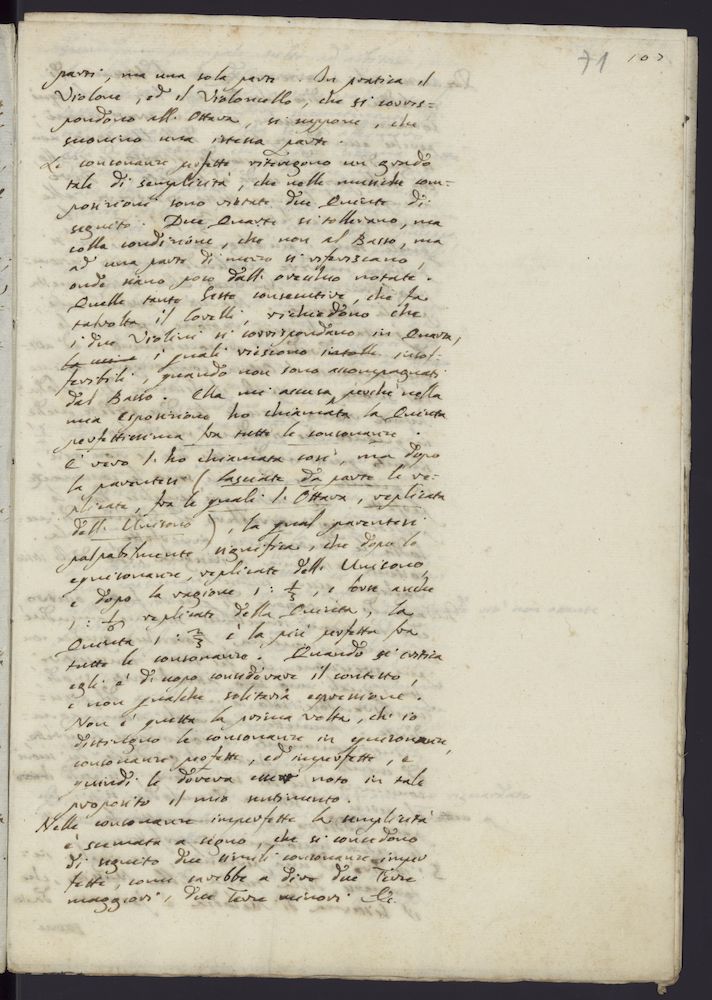 71 107
parti, ma una sola parte. In pratica il
Violone, ed il Violoncello, che si corris=
pondono all'Ottava, si suppone, che
suonino una istessa parte.
Le consonanze perfette ritengono un grado
tale di semplicità, che nelle musiche com-
posizioni sono vietate due Quinte di
seguito. Due Quarte si tollerano, ma
colla condizione, che non al Basso, ma
ad una parte di mezzo si riferiscano,
onde siano poco dall'orecchio notate.
Quelle tante Seste consecutive, che fa
talvolta il Corelli, richiedono che
i due Violini si corrispondano in Quarta,
i quali riescono insof-
feribili, quando non sono accompagnati
dal Basso. Ella mi accusa, perchè nella
mia esposizione ho chiamata la Quinta
perfettissima fra tutte le consonanze.
È vero l'ho chiamata così, ma dopo
la parentesi (lasciate da parte le re=
plicate, fra le quali l'Ottava, replicata
dell'Unisono), la qual parentesi
palpabilmente significa, che dopo le
equisonanze, replicate dell'Unisono,
e dopo la ragione 1: 1/3, e forse anche
1: 1/6, replicate della Quinta, la
Quinta 1: 2/3 è la più perfetta fra
tutte le consonanze. Quando si critica
egli è di uopo considerare il contesto,
e non qualche solitaria espressione.
Non è questa la prima volta, che io
distinguo le consonanze in equisonanze,
consonanze perfette, ed imperfette, e
quindi le doveva esser noto in tale
proposito il mio sentimento.
Nelle consonanze imperfette la semplicità
è scemata a segno, che si concedono
di seguito due simili consonanze imper
fette, come sarebbe a dire due Terze
maggiori, due Terze minori &c.